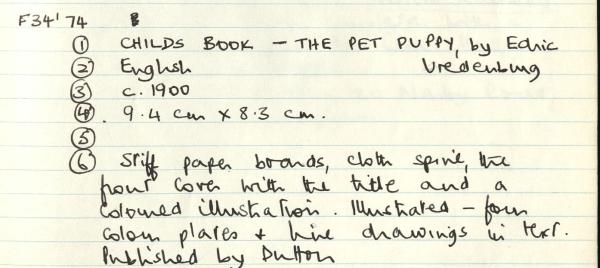 F34'74
① CHILDS BOOK - THE PET PUPPY, by Edric
Vredenburg
② English
③ c. 1900
④. 9.4 cm x 8.3 cm.
⑤
⑥ Stiff paper brands, cloth spine, the
front cover with the title and a
coloured illustration. Illustrated - four
colour plates + line drawings in text.
Published by Dutton